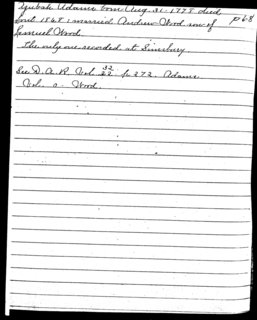 Adams born Aug. 31-1778 died p68
1868: married Andrew Wood son of
Samuel Wood.
The only one recorded at Simsbury.
See D. A. R. Vol. 32 p 272. Adams
Vol. a. Wood.